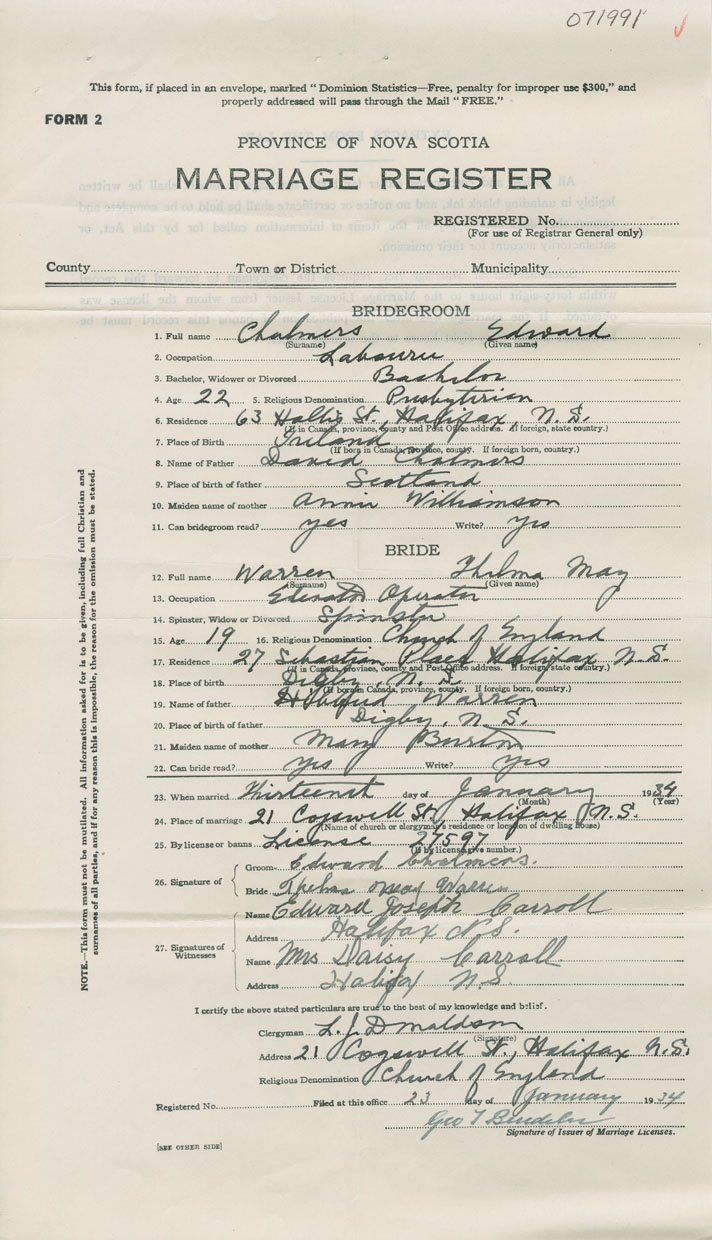 071991
This form, if placed in an envelope, marked "Dominion Statistics—Free, penalty for improper use $300," and
properly addressed will pass through the Mail "FREE."
FORM 2
PROVINCE OF NOVA SCOTIA
MARRIAGE REGISTER
REGISTERED No.
(For use of Registrar General only)
County Town or District Municipality
BRIDEGROOM
1. Full name Chalmers Edward
(Surname) (Given name)
2. Occupation Labourer
3. Bachelor, Widower or Divorced Bachelor
4. Age 22 5. Religious Denomination Presbyterian
6. Residence 63 Hollis St., Halifax N.S.
(If in Canada, province, county and Post Office address. If foreign, state country.)
7. Place of Birth Ireland
(If born in Canada, province, county. If foreign born, country.)
8. Name of Father David Chalmers
9. Place of birth of father Scotland
10. Maiden name of mother Annie Williamson
11. Can bridegroom read? yes Write? yes
BRIDE
12. Full name Warren Thelma May
(Surname) (Given name)
13. Occupation Elevator Operator
14. Spinster, Widow or Divorced Spinster
15. Age 19 16. Religious Denomination Church of England
17. Residence 27 Sebastian Place Halifax N.S.
(If in Canada, province, county and Post Office address. If foreign state country.)
18. Place of birth Digby, N.S.
(If born in Canada, province, county. If foreign born, country.)
19. Name of father Warren
20. Place of birth of father Digby, N.S.
21. Maiden name of mother Mary Burton
22. Can bride read? yes Write? yes
23. When married Thirteenth day of January 1934
(Month) (Year)
24. Place of marriage 21 Cogswell St., Halifax N.S.
(Name of church or clergyman's residence or location of dwelling house)
25. By license or banns License 27597
(If by license, give number.)
26. Signature of
Groom Edward Chalmers.
Bride Thelma May Warren
27. Signatures of Witnesses
Name Edward Joseph Carroll
Address Halifax N.S.
Name Mrs Daisy Carroll
Address Halifax N.S.
I certify the above stated particulars are true to the best of my knowledge and belief.
Clergyman L. J. Donaldson
(Signature)
Address 21 Cogswell St., Halifax N.S.
Religious Denomination Church of England
Registered No. Filed at this office 23 day of January 1934
Geo T
Signature of Issuer of Marriage Licenses.
[SEE OTHER SIDE]
NOTE.—This form must not be mutilated. All information asked for is to be given, including full Christian and
surnames of all parties, and if for any reason this is impossible, the reason for the omission must be stated.